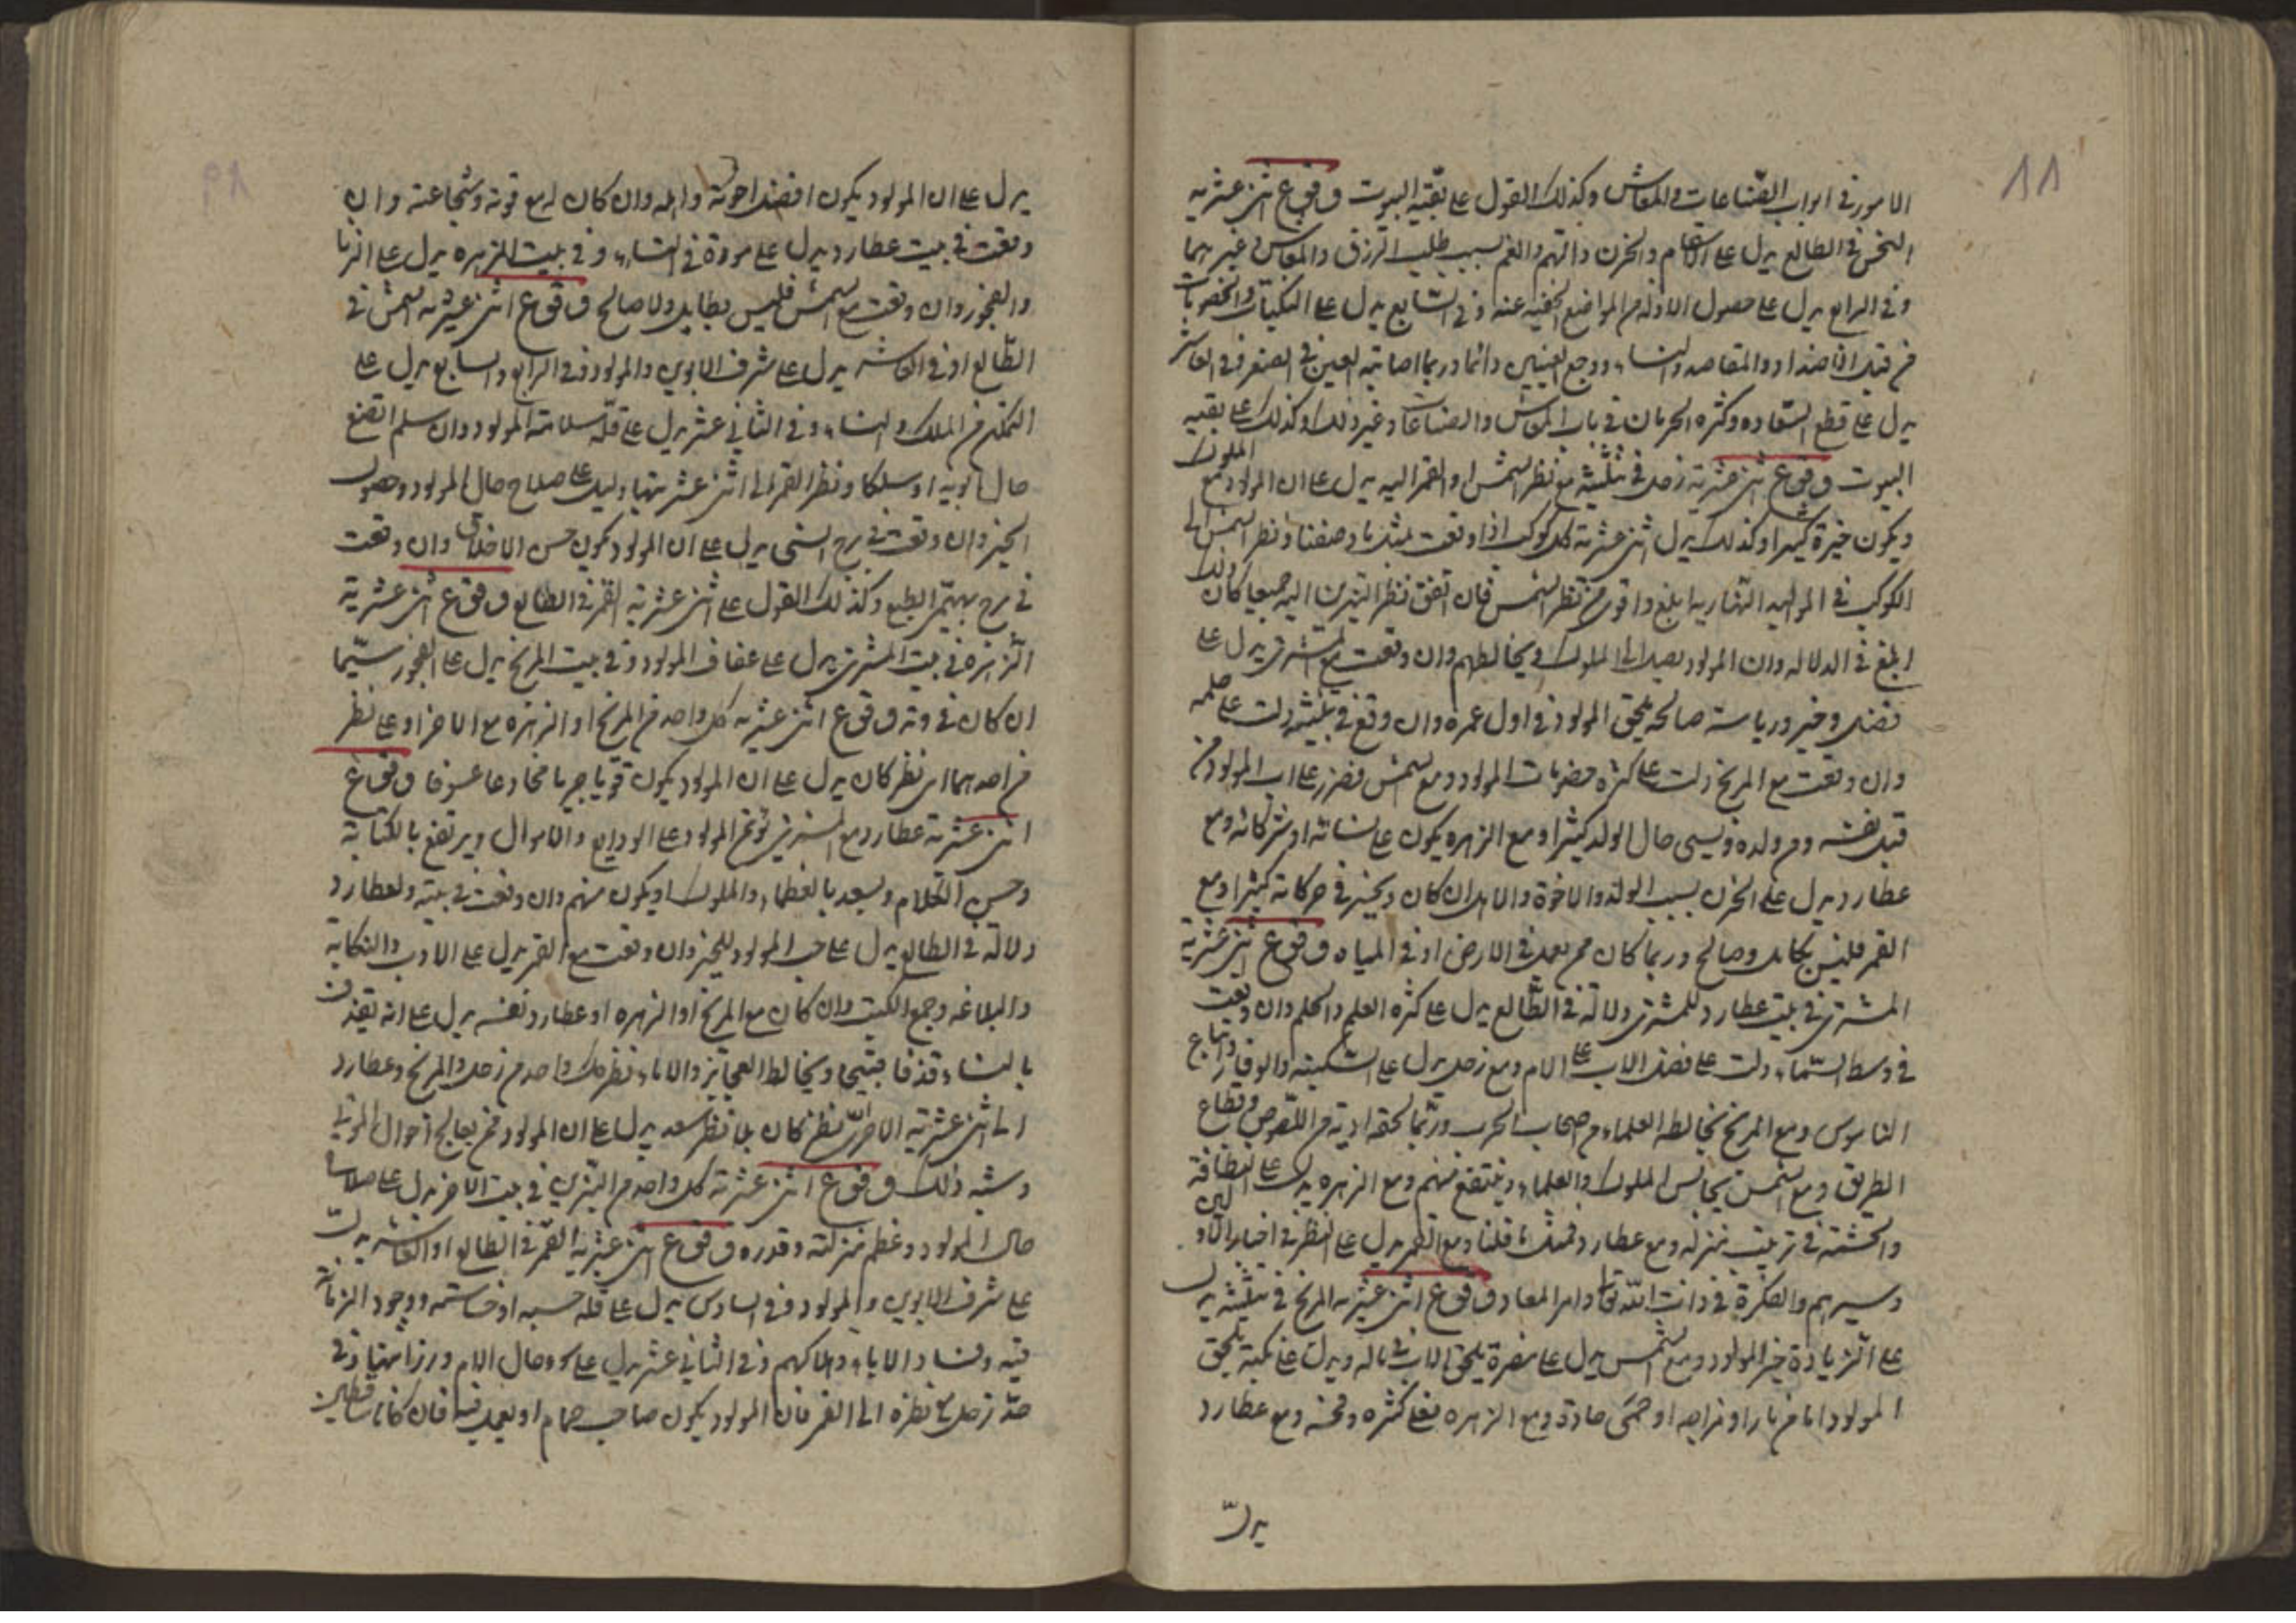 ١١
الامور في ابواب الصناعات والمعاش وكذلك القول على بقية البيوت وقوع اثنى عشرية
النحس في الطالع يدل على الاسقام والحزن والهم والغم بسبب طلب الرزق والمعاش في غيرهما
وفي الرابع يدل على حصول الاذية من المواضع الخفية عنه وفي السابع يدل على النكبات والخصومات
من قبل الاضداد والمقاصد والنساء ووجع العينين دائما وربما اصابته العين في الصغر وفي العاشر
يدل على قطع السعاده وكثره الحرمان في باب المعاش والصناعات وغير ذلك وكذلك على بقيه
البيوت وقوع اثنى عشرية زحل في مثلثه مع نظر الشمس او القمر اليه يدل على ان المولود مع الملوك
ويكون خيرة كثيرا وكذلك يدل اثنى عشرية كل كوكب اذا وقعت بمثل ما وصفنا ونظر الشمس الى
الكوكب في المواليد النهاريه ابلغ واقوى من نظر الشمس فان اتفق نظر النيرين اليه جميعا كان ذلك
ابلغ في الدلاله وان المولود يصل الى الملوك ويخالطهم وان وقعت مع المشترى يدل على
فضل وخير ورياسة صالحه تلحق المولود في اول عمره وان وقع في مثلثه دلت على حلمه
وان وقعت مع المريخ دلت على كثره حضربات المولود ومع الشمس تضرر على اب المولود من
قبل نفسه ومن ولده ويسى حال الولد كثيرا ومع الزهره يكون على نسائه او شركائه ومع
عطارد يدل على الحزن بسبب الولد والاخوة والاهل ان كان ويخير في حركاته كثيرا ومع
القمر فليس بكامل وصالح وربما كان ممن يعمل في الارض او في المياه وقوع اثنى عشرية
المشترى في بيت عطارد وللمشترى دلالة في الطالع يدل على كثره العلم والحلم وان وقعت
في وسط السماء دلت على فضل الاب على الام ومع زحل يدل على السكينه والوقار واتباع
الناموس ومع المريخ يخالطه العلماء من اصحاب الحرب وربما لحقه اذية من اللصوص وقطاع
الطريق ومع الشمس يجالس الملوك والعلماء وينتفع منهم ومع الزهره يدل على النظافة
والحشمة في ترتيب منزله ومع عطارد فمثل ما قلنا ومع القمر يدل على النظر في اخبار الاولين
وسيرهم والفكرة في ذات الله تعالى وامر المعاد وقوع اثنى عشريه المريخ في مثلثه يدل
على الزيادة خير المولود ومع الشمس يدل على مضرة تلحق الاب في ماله ويدل على نكبة تلحق
المولود اما من نار او من جراحه او حمى حادة ومع الزهره فعلى كثره وقحه ومع عطارد
يدل
يدل على ان المولود يكون افضل اخوته واهله وان كان مع قوته وشجاعته وان
وقعت في بيت عطارد يدل على مودة في النساء وفي بيت الزهره يدل على الزنا
والفجور وان وقعت مع الشمس فليس بطايل ولا صالح وقوع اثنى عشريه الشمس في
الطالع او في العاشر يدل على شرف الابوين والمولود وفي الرابع والسابع يدل على
التمكن من الملك والنساء وفي الثاني عشر يدل على قلة سلامة المولود وان سلم اتضع
حال ابويه او سلكا ونظر القمر الى اثنى عشريتها دليل على صلاح حال المولود وحصول
الخير وان وقعت في برج انسى يدل على ان المولود يكون حسن الاخلاق وان وقعت
في برج بهيمى الطبع وكذلك القول على اثنى عشريه القمر في الطالع وقوع اثنى عشرية
الزهرة في بيت المشترى يدل على عفاف المولود وفي بيت المريخ يدل على الفجور سيما
ان كان في وتد وقوع اثنى عشريه كل واحد من المريخ او الزهره مع الاخر او على نظر
من احدهما اى نظر كان يدل على ان المولود يكون قويا جريا مخادعا عسوفا وقوع
اثنى عشرية عطارد مع المشترى يؤتمن المولود على الودايع والاموال ويرتفع بالكتابة
وحسن الكلام ويسعد بالعظماء والملوك او يكون منهم وان وقعت في بيته ولعطارد
دلالة في الطالع يدل على حب المولود للخير وان وقعت مع القمر يدل على الادب والكتابة
والبلاغه وجمع الكتب وان كان مع المريخ او الزهره او عطارد نفسه يدل على انه يقذف
بالنساء قذفا قبيحا ويخالط العجائز والاماء نظر كل واحد من زحل والمريخ وعطارد
الى اثنى عشرية الاخر اى نظر كان بلا نظر سعد يدل على ان المولود ممن يعالج احوال الموتى
وشبه ذلك وقوع اثنى عشرية كل واحد من النيرين في بيت الاخر يدل على صلاح
حال المولود وعظم منزلته وقدره وقوع اثنى عشرية القمر في الطالع او العاشر يدل
على شرف الابوين والمولود وفي السادس يدل على قلة حسبه او خساسته ووجود الزمانة
فيه وفساد الاباء وهلاكهم وفي الثاني عشر يدل على حال الام ورزائتها وفي
حد زحل مع نظره الى القمر فان المولود يكون صاحب حمام او يعمل فيه فان كانا ساقطين